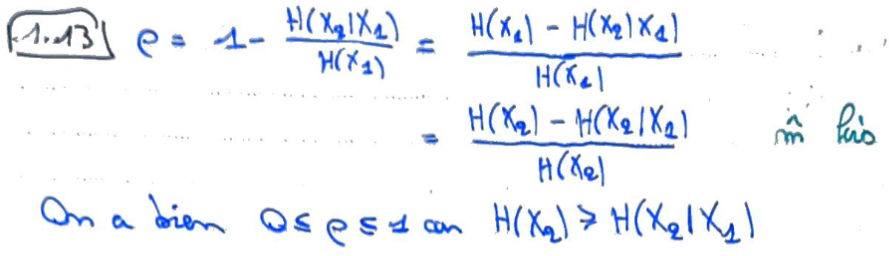 1.13 ρ = 1 - H(X₂|X₁)/H(X₁) = (H(X₁) - H(X₂|X₁))/H(X₁)
= (H(X₂) - H(X₂|X₁))/H(X₂) m̂ lois
On a bien 0 ≤ ρ ≤ 1 car H(X₂) ≥ H(X₂|X₁)